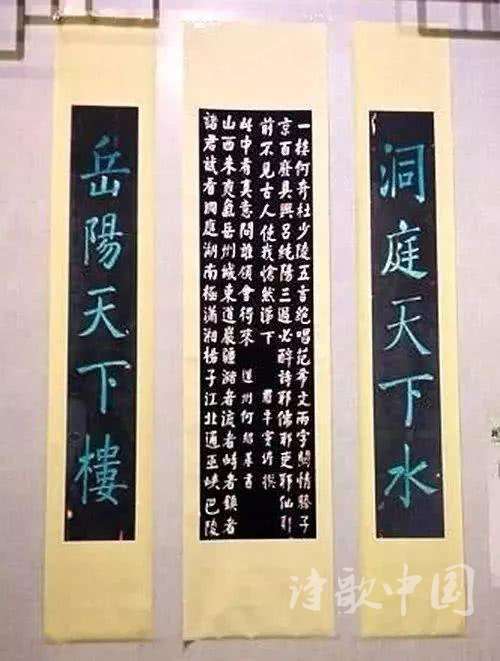 洞庭天下水
一樓何奇杜少陵五言絕唱范希文兩字關情滕子
京百廢具興呂純陽三過必醉詩耶儒耶吏耶仙耶
前不見古人使我愴然涕下 君平竇垿撰
諸君試看洞庭湖南極瀟湘揚子江北通巫峽巴陵
山西來爽氣岳州城東道巖疆瀦者流者峙者鎮者
此中有真意問誰領會得來 道州何紹基書
岳陽天下樓
诗歌中国